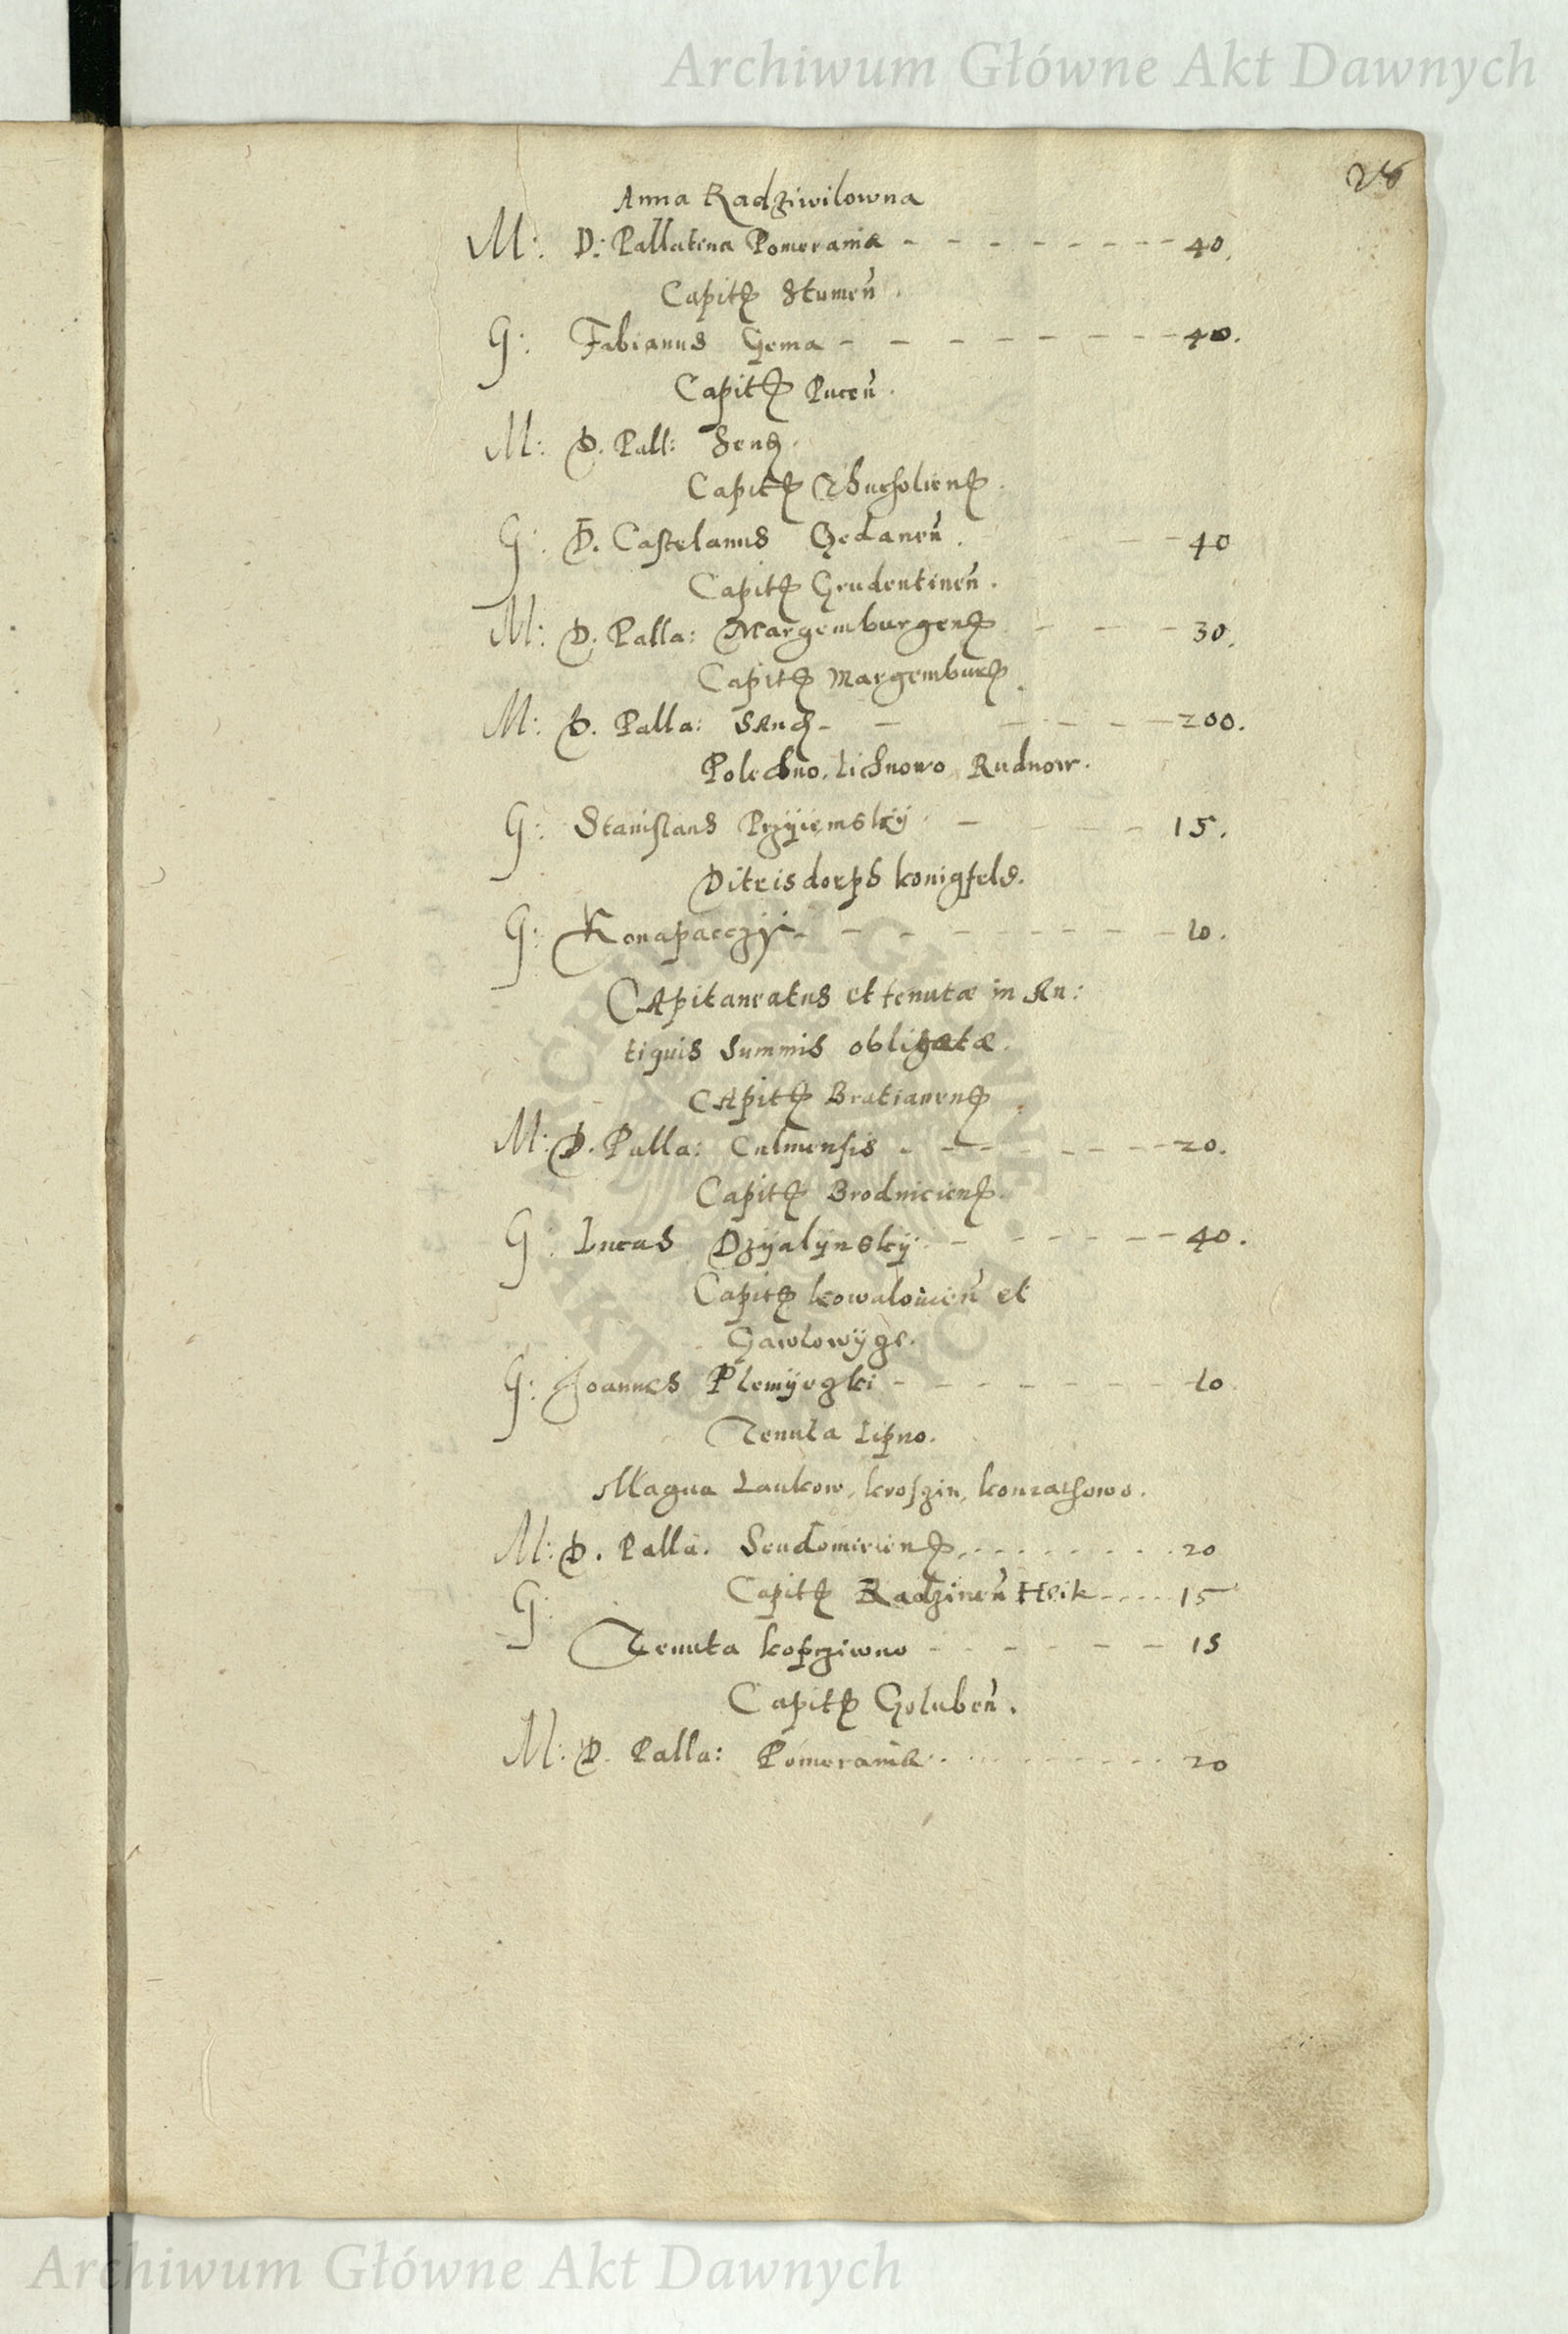 Archiwum Główne Akt Dawnych
Anna Radziwilowna
M: D: Pallatina Pomeraniæ - - - - - - - - 40.
Capit Stumen.
G: Fabianus Gema - - - - - - - - 40.
Capit Pucen.
M: D. Pall: Send.
Capit
G: D. Castelanus Gedanen. - - 40
Capit Grudentinen.
M: D. Palla: Margemburgen - - - - 30.
Capit Margembur.
M: D. Palla: - - - - - - 200.
Polechno, Lichnowo, Rudnow.
G: Stanislaus Przÿiemskÿ - - - 15.
Diteisdorph konigfeld.
G: Konapaczÿi - - - - - - - - 10.
Capitaneatus et tenutæ in An:
tiquis summis obligatæ.
Capit Bratianen
M: D. Palla: Culmensis - - - - - - - 20.
Capit Brodnicien.
G: Lucas Dzÿalÿnskÿ - - - - - - 40.
Capit kowalowien et
G: Joannes - - - - - - - 10
Tenuta Lipno.
Magna Laukow, kroszin,
M: D. Palla. Sendomirien - - - - - - - - 20
G: Capit Radzinen - - - - 15
Tenuta - - - - - - 15
Capit Goluben.
M: D. Palla: Pomeraniæ - - - - - - - - - 20
Archiwum Główne Akt Dawnych